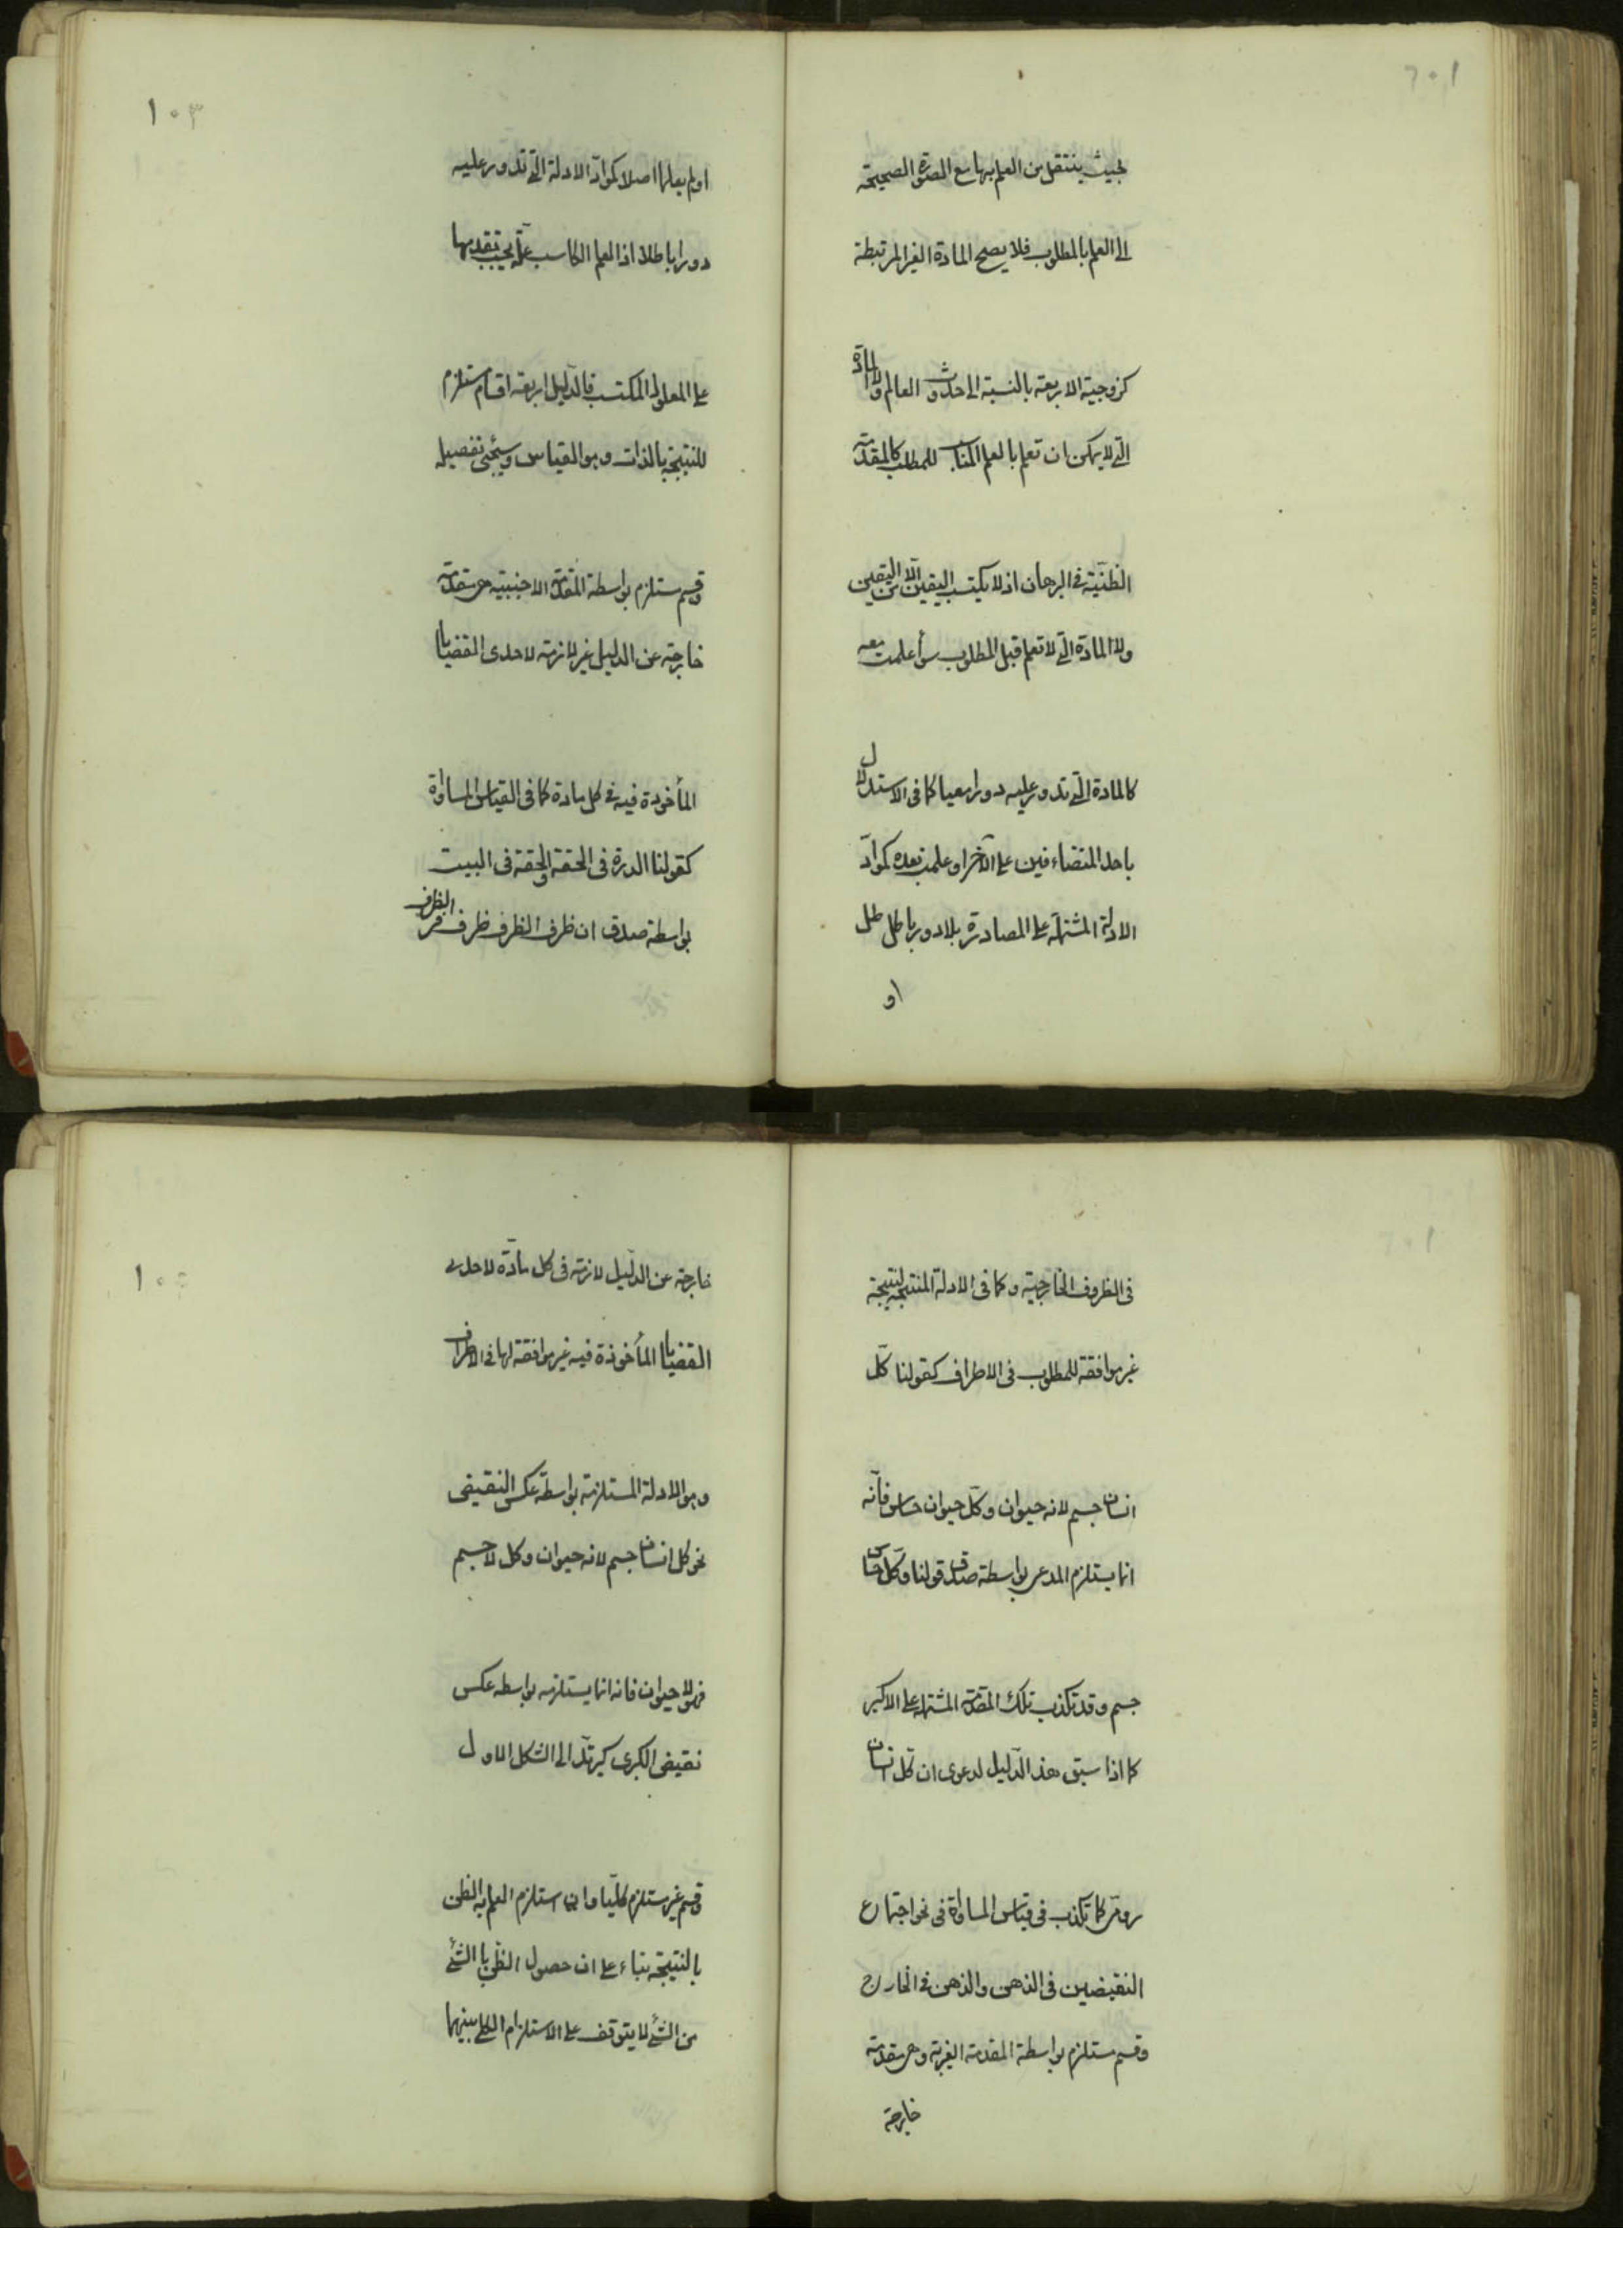 بحيث ينتقل من العلم بها مع الصورة الصحيحة
الى العلم بالمطلوب فلا يصح المادة الغير المرتبطة
كزوجية الاربعة بالنسبة الى حدوث العالم ولا المادة
التى لا يمكن ان تعلم بالعلم المناسب للمطلب كالمقدمة
الظنّية فى البرهان اذ لا يكتسب اليقين الّا من اليقين
ولا المادة التى لا تعلم قبل المطلوب سوأ علمت معه
كالمادة التى تدور عليه دورا معيا كما فى الاستدلال
باحد المتضاءفين على الآخر او علمت بعده كموادّ
الادلة المشتملة على المصادرة بلا دور باطل
او
١٠٣
او لم يعلم اصلا كموادّ الادلة التى تدور عليه
دورا باطلا اذ العلم الكاسب علّة يجب تقدمها
على المعلول المكتسب فالدليل اربعة اقسام مستلزم
للنتيجة بالذات وهو القياس وسيجئ تفصيله
وقسم مستلزم بواسطة المقدمة الاجنبية هى مقدمة
خارجة عن الدليل غير لازمة لاحدى القضايا
المأخوذة فيه فى كل مادة كما فى القياس المساواة
كقولنا الدرة فى الحقة والحقة فى البيت
بواسطة صدق ان ظرف الظرف ظرف
فى الظروف الخارجية وكما فى الادلة المنتجة لنتيجة
غير موافقة للمطلوب فى الاطراف كقولنا كلّ
انسان جسم لانه حيوان وكلّ حيوان حساس فانّه
انما يستلزم المدعى بواسطة صدق قولنا وكلّ حساس
جسم وقد تكذب تلك المقدمة المشتملة على الاكبر
كما اذا سبق هذا الدّليل لدعوى ان كلّ انسان
رومىّ كما تكذب فى قياس المساواة فى نحو اجتماع
النقيضين فى الذهن والذهن فى الخارج
وقسم مستلزم بواسطة المقدمة الغريبة وهى مقدمة
خارجة
خارجة عن الدّليل لازمة فى كل مادّة لاحدى
القضايا المأخوذة فيه غير موافقة لها فى الاطراف
وهو الادلة المستلزمة بواسطة عكس النقيض
نحو كل انسان جسم لانه حيوان وكل لا جسم
فهو لا حيوان فانه انما يستلزمه بواسطه عكس
نقيض الكبرى ليرتدّ الى الشكل الاول
وقسم غير مستلزم كليّا وان استلزم العلم به الظن
بالنتيجة بناء على ان حصول الظنّ بالشئ
من الشئ لا يتوقف على الاستلزام الكلى بينهما